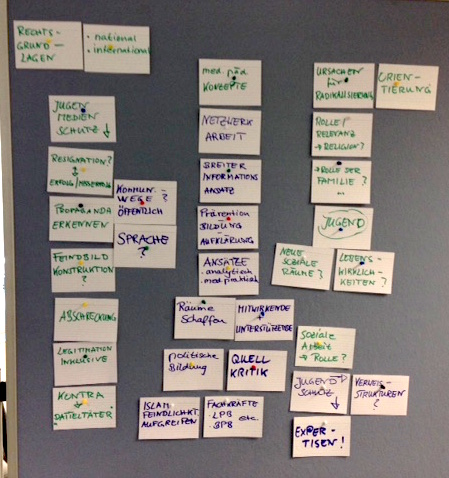 RECHTS-
GRUND-
LAGEN
• national
• international
JUGEN
MEDIEN
SCHUTZ ↓
RESIGNATION?
↓
ERFOLG/
PROPAGANDA
ERKENNEN
FEINDBILD
KONSTRUKTION
?
ABSCHRECKUNG
LEGITIMATION
INKLUSIVE
KONTRA
DATTELTÄTER
KOMMUN. -
WEGE ?
ÖFFENTLICH
SPRACHE
?
med. päd
KONZEPTE
NETZWERK
ARBEIT
BREITER
INFORMATIONS
ANSATZ
Prävention
BILDUNG
AUFKLÄRUNG
ANSÄTZE
- analytisch
- med. praktisch
Räume
Schaffen
MITWIRKENDE
+
UNTERSTÜTZENDE
politische
Bildung
QUELL
KRITIK
ISLAM
FEINDLICHKT.
AUFGREIFEN
FACHKRÄFTE
- LPB etc.
- BPB
URSACHEN
für
RADIKALISIERUNG
ORIEN-
TIERUNG
ROLLE/
RELEVANZ
→ RELIGION?
→ ROLLE DER
FAMILIE?
...
JUGEND
NEUE
SOZIALE
RÄUME?
LEBENS-
WIRKLICH-
KEITEN?
SOZIALE
Arbeit
→ ROLLE?
JUGEND
SCHUTZ
↓
VERWEIS-
STRUKTUREN
?
EXPER-
TISEN!